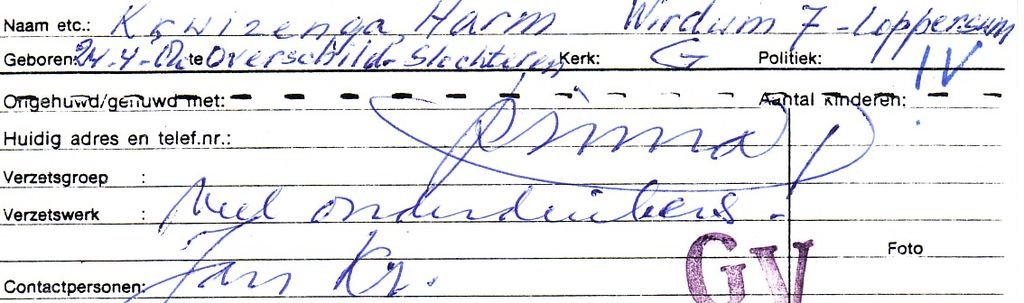 Naam etc.: Kruizenga, Harm Wirdum 7 - Loppersum
Geboren: 24-4-02 te Overschild-Slochteren Kerk: G Politiek: IV
Ongehuwd/gehuwd met: Aantal kinderen:
Huidig adres en telef.nr.: prima
Verzetsgroep :
Verzetswerk : Veel onderduikers.
Foto
Contactpersonen: Jan Kr.
GV